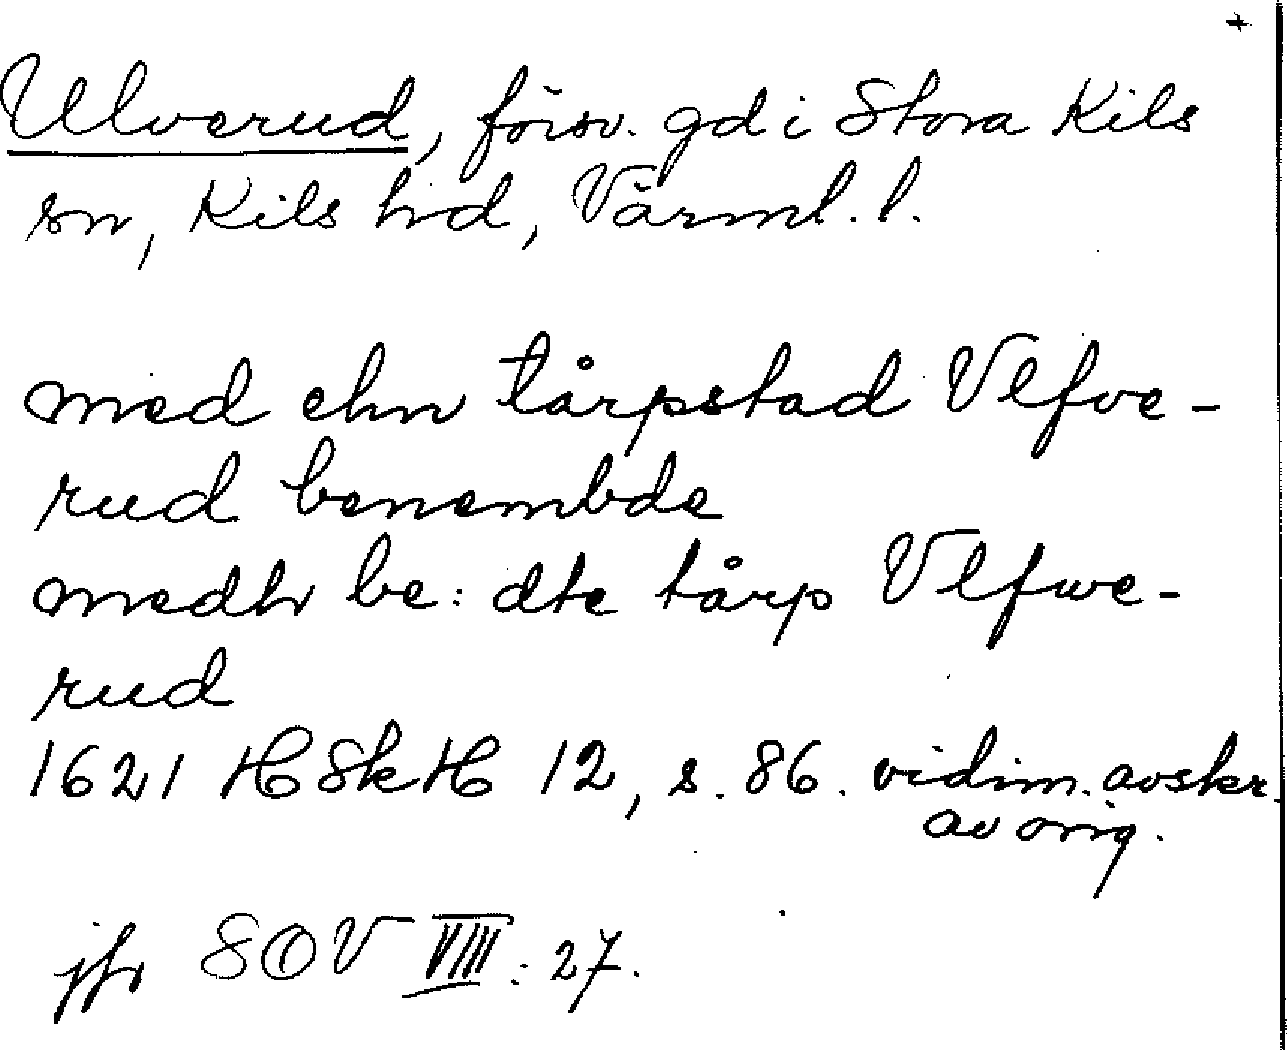 +
Ulverud, försv. gd i Stora Kils
sn, Kils hd, Värml. l.
med ehn tårpstad Vlfve-
rud benembde
medh be: dte tårp Vlfwe-
rud
1621 HSkH 12, s. 86. vidim. avskr.
av orig.
jfr SOV VIII: 27.